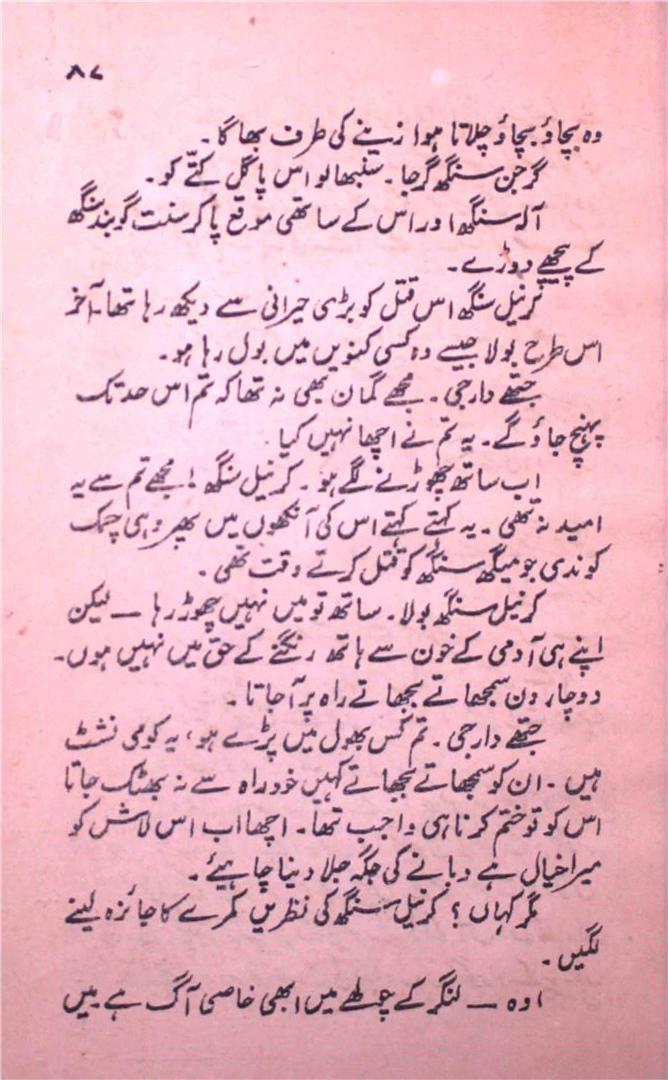 ۸۷
وہ بچاؤ بچاؤ چلاتا ہوا زینے کی طرف بھاگا۔
گرجن سنگھ گرجا۔ سنبھالو اس پاگل کتّے کو۔
آلہ سنگھ اور اس کے ساتھی موقع پا کر سنت گوبند سنگھ
کے پیچھے دوڑے۔
کرنیل سنگھ اس قتل کو بڑی حیرانی سے دیکھ رہا تھا۔ آخر
اس طرح بولا جیسے وہ کسی کنویں میں بول رہا ہو۔
جتھے دار جی۔ مجھے گمان بھی نہ تھا کہ تم اس حد تک
پہنچ جاؤ گے۔ یہ تم نے اچھا نہیں کیا
اب ساتھ چھوڑنے لگے ہو۔ کرنیل سنگھ! مجھے تم سے یہ
امید نہ تھی۔ یہ کہتے کہتے اس کی آنکھوں میں پھر وہی چمک
کوندی جو میگھ سنگھ کو قتل کرتے وقت تھی۔
کرنیل سنگھ بولا۔ ساتھ تو میں نہیں چھوڑ رہا — لیکن
اپنے ہی آدمی کے خون سے ہاتھ رنگنے کے حق میں نہیں ہوں۔
دو چار دن سمجھاتے بجھاتے راہ پر آ جاتا۔
جتھے دار جی۔ تم کس بھول میں پڑے ہو، یہ کومی نشٹ
ہیں۔ ان کو سمجھاتے بجھاتے کہیں خود راہ سے نہ بھٹک جاتا
اس کو تو ختم کرنا ہی واجب تھا۔ اچھا اب اس لاش کو
میرا خیال ہے دبانے کی جگہ جلا دینا چاہیئے۔
مگر کہاں؟ کرنیل سنگھ کی نظریں کمرے کا جائزہ لینے
لگیں۔
اوہ — لنگر کے چولھے میں ابھی خاصی آگ ہے میں